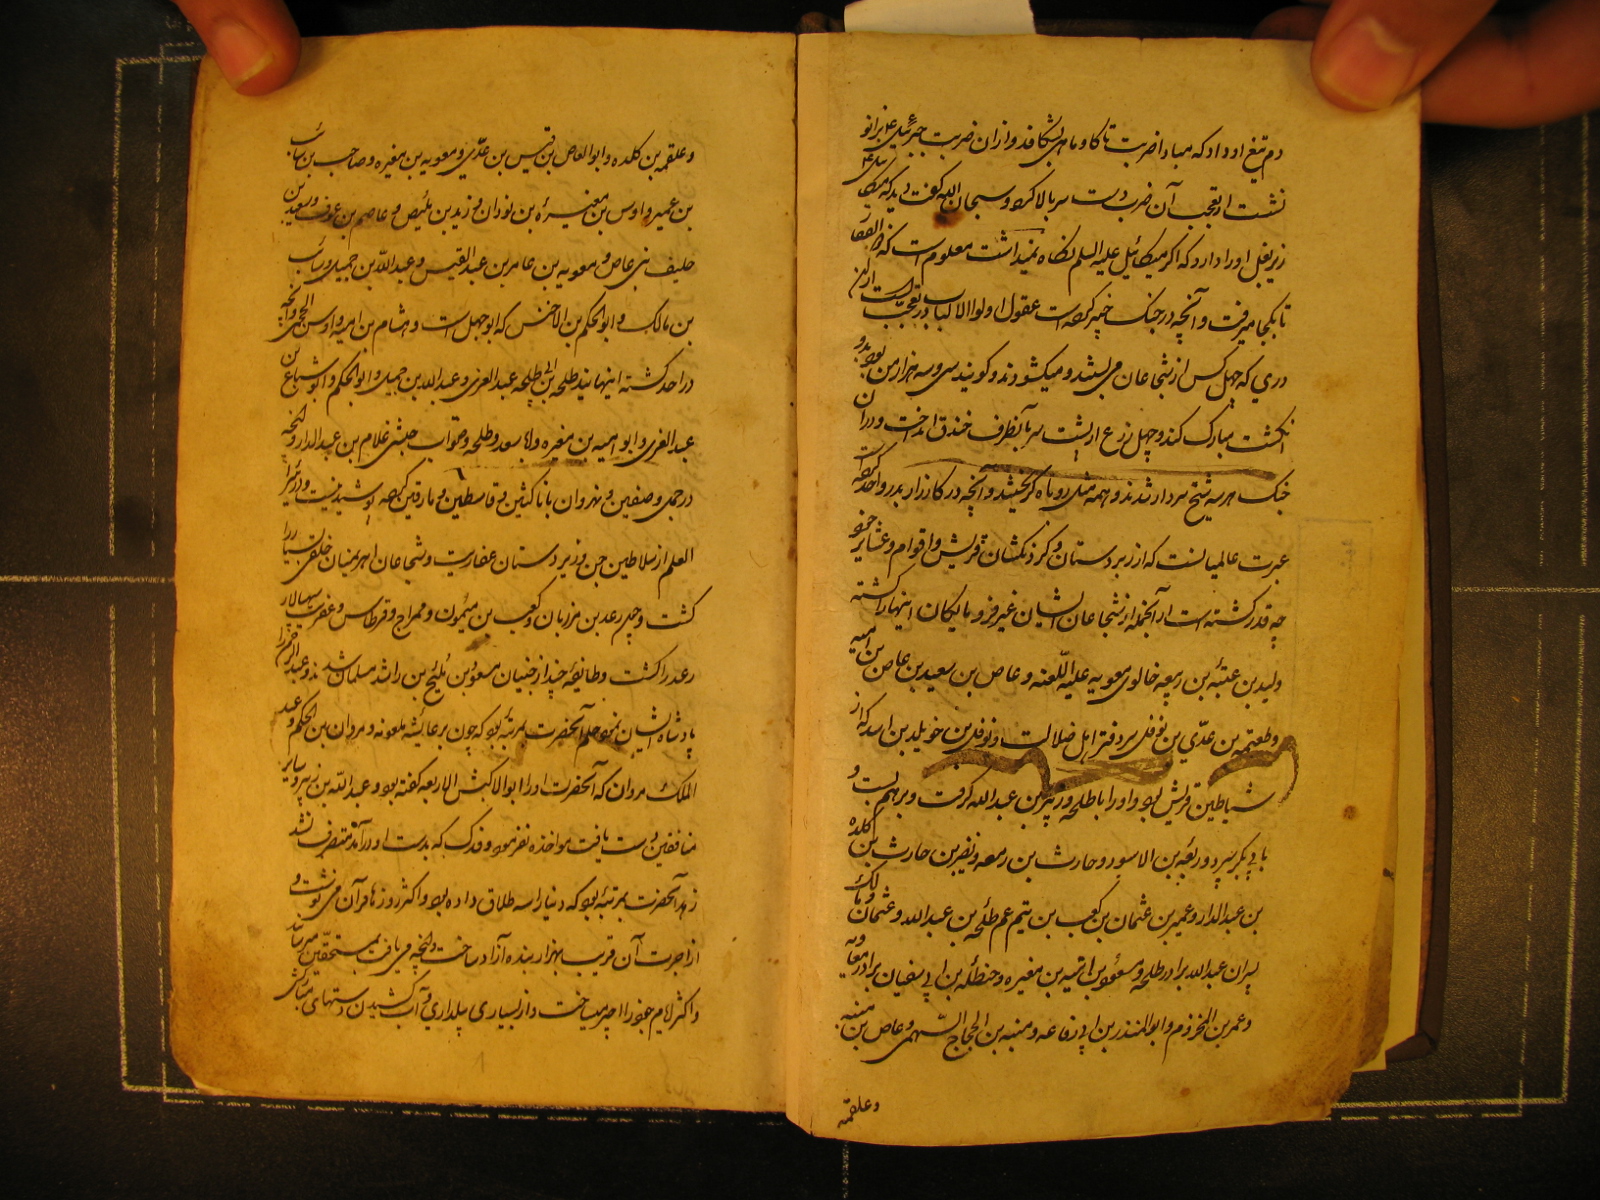 دم تیغ او داد که مبادا ضربت تا کاو ماهی بشکافد و از ان ضربت جبرئیل ع بزانو
نشست از تعجب آن ضرب دست سر بالا کرد و سبحان الله گفت دید که میکائیل ع
زیر بغل او را دارد که اگر میکائیل علیه السلم نگاه نمیداشت معلوم است که ذو الفقار
تا بکجا میرفت و آنچه در جنگ خیبر کرده است عقول اولوا الالباب در تعجب است از کندن
دری که چهل کس از شجاعان می بستند و میکشودند و گویند سی و سه هزار من بود بدو
انگشت مبارک کند و چهل زرع از پشت سر بآنطرف خندق انداخت و در ان
جنک هر سه شیخ سردار شدند و همه مثل روباه کریختند و آنچه در کارزار بدر و احد کرده
عبرت عالمیانست که از زبردستان و گردنکشان قریش و اقوام و عشایر خود
چه قدر کشته است از آنجمله از شجاعان ایشان غیر فرومایکان اینها را کشته
ولید بن عتبه بن ربیعه خالوی معویه علیه اللعنه و عاص بن سعید بن عاص بن امیه
و طعیمه بن عدی بن نوفل سر دفتر اهل ضلالت و نوفل بن خویلد بن اسد که از
شیاطین قریش بود و او را با طلحه و زبیر بن عبد الله گرفت و بر هم بست و
بابی بکر سپرد و ربیعه بن الاسود و حارث بن زمعه و نضر بن حارث بن کلده
بن عبد الدار و عمیر بن عثمان بن کعب بن تیم عم طلحه بن عبد الله و عثمان و مالک
پسران عبد الله برادر طلحه و مسعود بن امیه بن مغیره و حنظله بن ابی سفیان برادر معاویه
و عمر بن المخزوم و ابو المنذر بن ابی رفاعه و منبه بن الحجاج السهمی و عاص بن منبه
و علقمه
و علقمه بن کلده و ابو العاص بن قیس بن عدی و معویه بن مغیره و صاحب بن سائب
بن عمیر و اوس بن مغیره بن لوذان و زید بن ملیص و عاصم بن عوف و سعید بن
حلیف بنی عاص و معویه بن عامر بن عبد القیس و عبد الله بن جمیل و سائب
بن مالک و ابو الحکم بن الاخنس که ابو جهل است و هشام بن امیه و اوس الجمحی و آنچه
در احد کشته اینهایند طلحه بن ابی طلحه عبد العزی و عبد الله بن جمیل و ابو الحکم و ابو سباع بن
عبد العزی و ابو امیه بن مغیره و اسعد و طلحه و صواب حبشی غلام بن عبد الدار و آنچه
در جمل و صفین و نهروان با ناکثین و قاسطین و مارقین کرده پوشیده نیست و در بئر
العلم از سلاطین جن و زبردستان عفاریت و شجاعان اهریمنان خلقی بسیار را
کشت و چهر رعد بن مرزبان و کعب بن میمون و مهراج و قرطاس و عفریت سپهسالار
رعد را کشت و طایفه چند از جنیان مسعود بن بلیح بن راشد مسلمان شدند و عبد الرحمن را
پادشاه ایشان نمود حلم آنحضرت بمرتبه بود که چون بر عایشه ملعونه و مروان بن الحکم و عبد
الملک مروان که آنحضرت او را ابو الاکبش الاربعه گفته بود و عبد الله بن زبیر و سایر
منافقین دست یافت مواخذه نفرمود و فدک که بدست او در آمد متصرف نشد
زهد آنحضرت بمرتبه بود که دنیا را سه طلاق داده بود و اکثر روزها قرآن می نوشت و
از اجرت آن قریب بهزار بنده آزاد ساخت و آنچه می یافت بمستحقین میرساند
و اکثر لایام خود را اجیر میساخت و از بسیاری بیلداری و آب کشیدن دستهای مبارکش